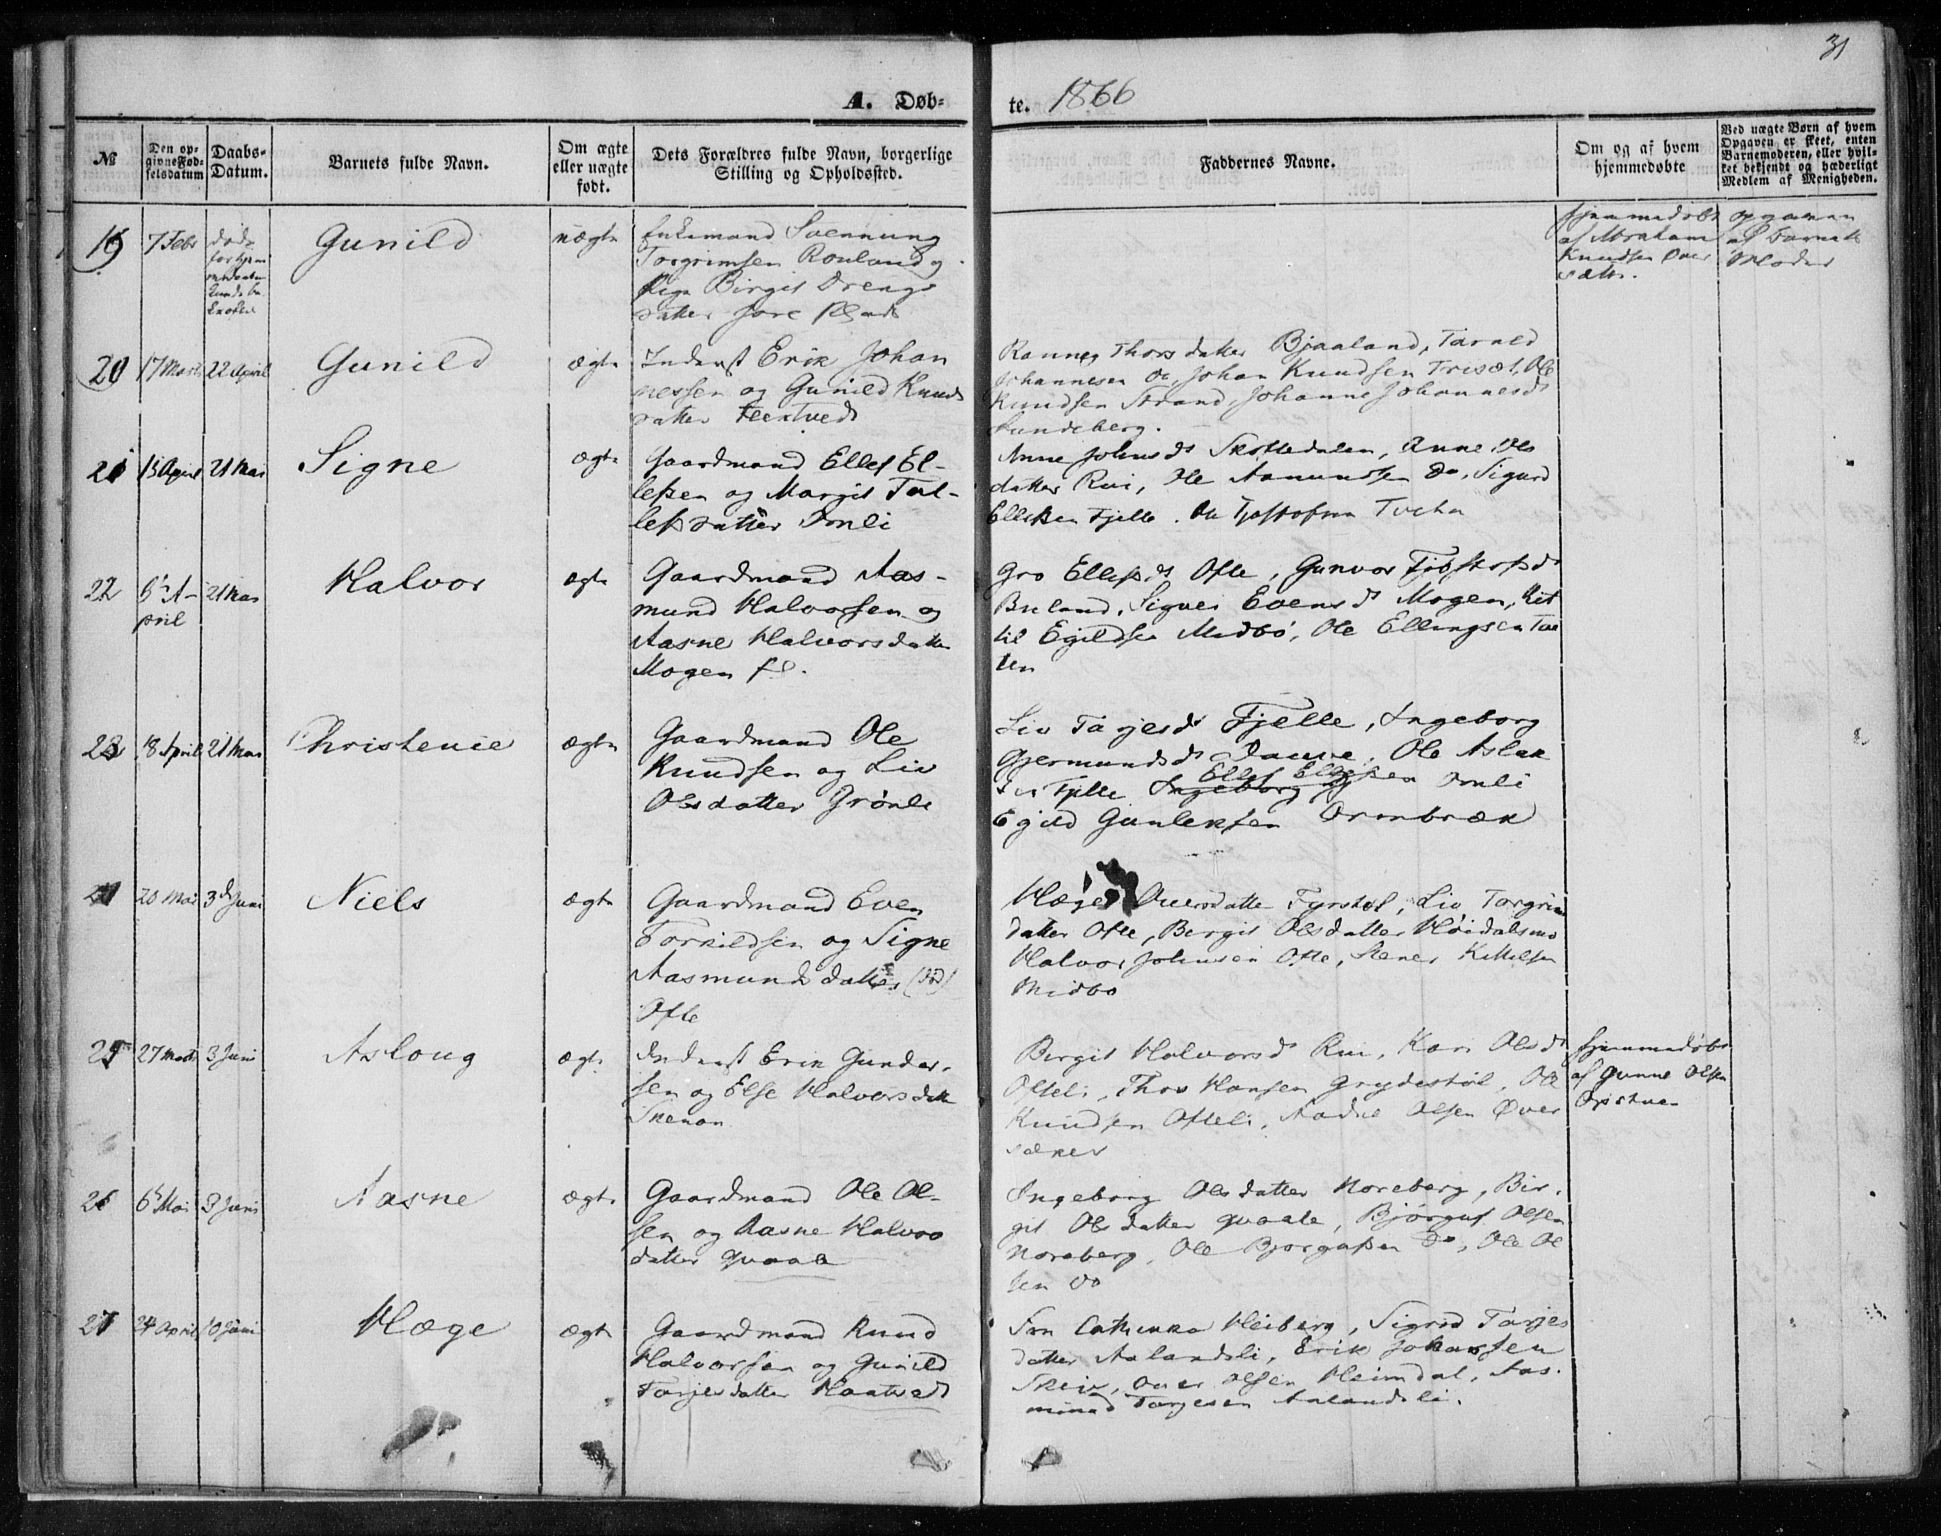 31
A. Døb-
te. 1866
№
Den op-
givne Fød-
selsdatum
Daabs-
Datum.
Barnets fulde Navn.
Om ægte
eller uægte
født.
Dets Forældres fulde Navn, borgerlige
Stilling og Opholdssted.
Faddernes Navne.
Om og af hvem
hjemmedøbte
Ved uægte Børn af hvem
Opgaven er skeet, enten
Barnemoderen, eller hvil-
ket bekjendt og hæderligt
Medlem af Menigheden.
19
7 Febr
døde
før hjem
Gunild
uægte
Enkemand Svennung
Torgrimsen Rouland og
Pige Birgit Drengs
datter
hjemmedøbt
af Abraham
Knudsen Over
Opgaven
af Barnets
Moder
20
17 Marts
22 April
Gunild
ægte
Inderst Erik Johan
nessen og Gunild Knuds
datter
Thorsdatter Bjaaland, Tarald
Johannesen Do, Johan Knudsen Trisæt, Ole
Knudsen Strand, Johanne Johannesd.
Sundeberg.
21
13 April
21 Mai
Signe
ægte
Gaardmand Ellef El-
lefsen og Margit Tal-
lefsdatter Omli
Anne Johnsd. Skottedalen, Anne Ols
datter Rui, Ole Aamundsen Do, Sigurd
Ellefsen Fjelle.
22
6te A-
pril
21 Mai
Halvor
ægte
Gaardmand Aas-
mund Halvorsen og
Aasne Halvorsdatter
Mogen
Gro Ellefsd. Ofte, Gunvor
Signe Evensd. Mogen, Ket
til Egildsen Midbø, Ole Ellingsen
23
18 April
21 Mai
Christenie
ægte
Gaardmand Ole
Knudsen og Liv
Olsdatter Grønli
Liv Tarjesd. Fjelle, Ingeborg
Gjermundsd. Ole Aslak
sen Fjelle Ingeborg Ellef Ellefsen Omli
Egild Gunleksen Ormbræk
24
20 Mai
3de Juni
Niels
ægte
Gaardmand Even
Torkildsen og Signe
Aasmundsdatter
Ofte
Hæge Oversdatter Fyrstøl, Liv Torgrims
datter Ofte, Bergit Olsdatter Høidalsmo
Halvor Johnsen Ofte, Stener Kittilsen
Midbø
25
27 Marts
3 Juni
Asloug
ægte
Inderst Erik Gunder-
sen og Else Halvorsdatter
Birgit Halvorsd. Rui, Kari Olsd.
Ofteli, Thov Hansen Grydestøl, Ole
Knudsen Ofteli, Aadne Olsen Over
hjemmedøbt
af Gunne Olsen
26
6te Mai
3 Juni
Aasne
ægte
Gaardmand Ole Ol-
sen og Aasne Halvors
datter Qvaale
Ingeborg Olsdatter Noreberg, Bir-
git Olsdatter Qvaale, Bjørguf Olsen
Noreberg, Ole Bjørgufsen Do, Ole Ol
sen Do
27
24 April
10 Juni
Hæge
ægte
Gaardmand Knud
Halvorsen og Gunild
Tarjesdatter Haatvedt
Frn Cathinka Heiberg, Sigrid Tarjes
datter Aalandsli, Erik Johansen
Skeie, Over Olsen Heimdal, Aas-
mund Tarjesen Aalandsli.